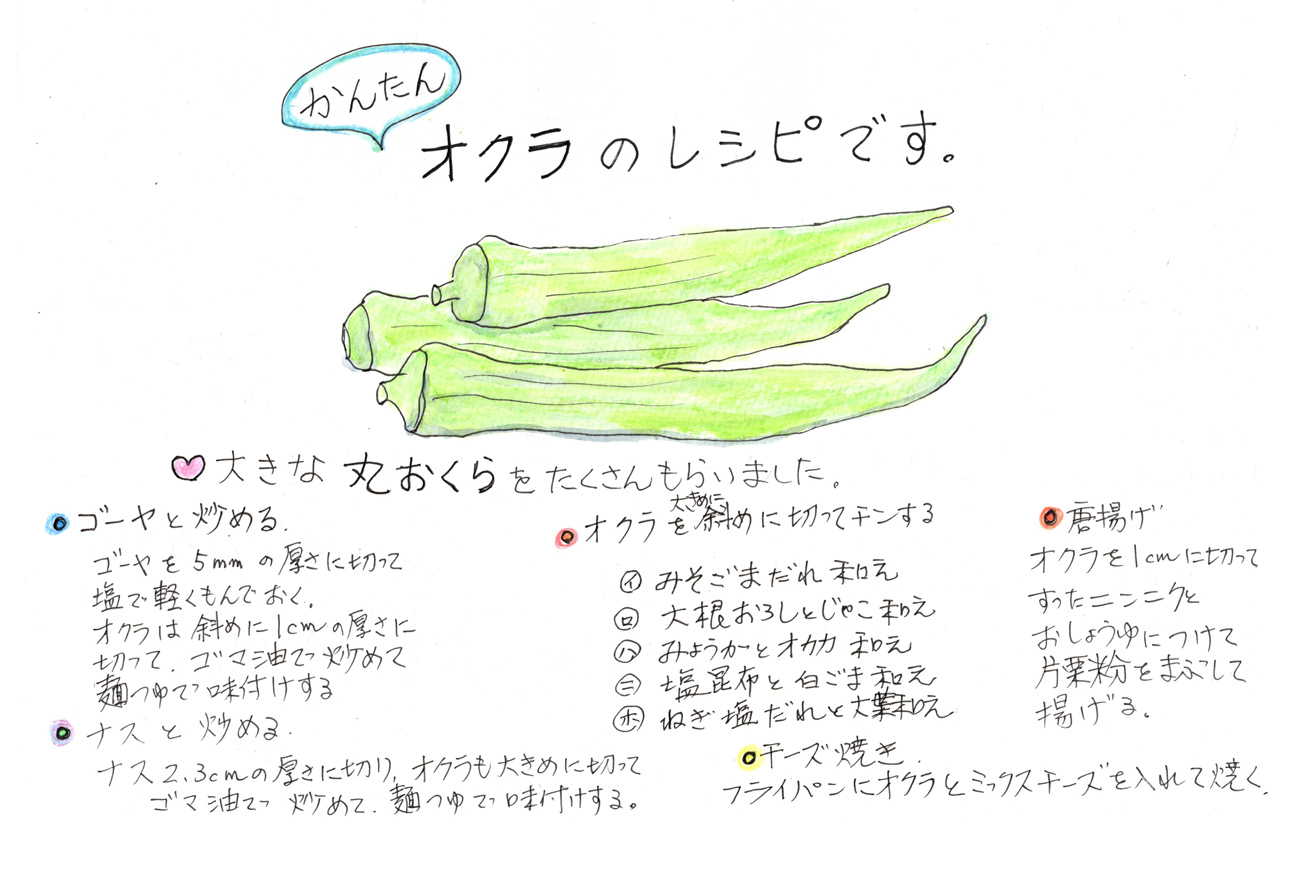 かんたん
オクラのレシピです。
大きな 丸おくらをたくさんもらいました。
ゴーヤと炒める.
ゴーヤを5mmの厚さに切って
塩で軽くもんでおく.
オクラは斜めに1cmの厚さに
切って.ゴマ油でっ炒めて
麺つゆでっ味付けする
ナスと炒める.
ナス2.3cmの厚さに切り,オクラも大きめに切って
ゴマ油でっ炒めて.麺つゆでっ味付けする。
大きめに
オクラを斜めに切ってチンする
イ みそごまだれ和え
ロ 大根おろしとじゃこ和え
ハ みょうがとオカカ和え
ニ 塩昆布と白ごま和え
ホ ねぎ塩だれと大葉和え
チーズ焼き.
フライパンにオクラとミックスチーズを入れて焼く.
唐揚げ
オクラを1cmに切って
すったニンニクと
おしょうゆにつけて
片栗粉をまぶして
揚げる.